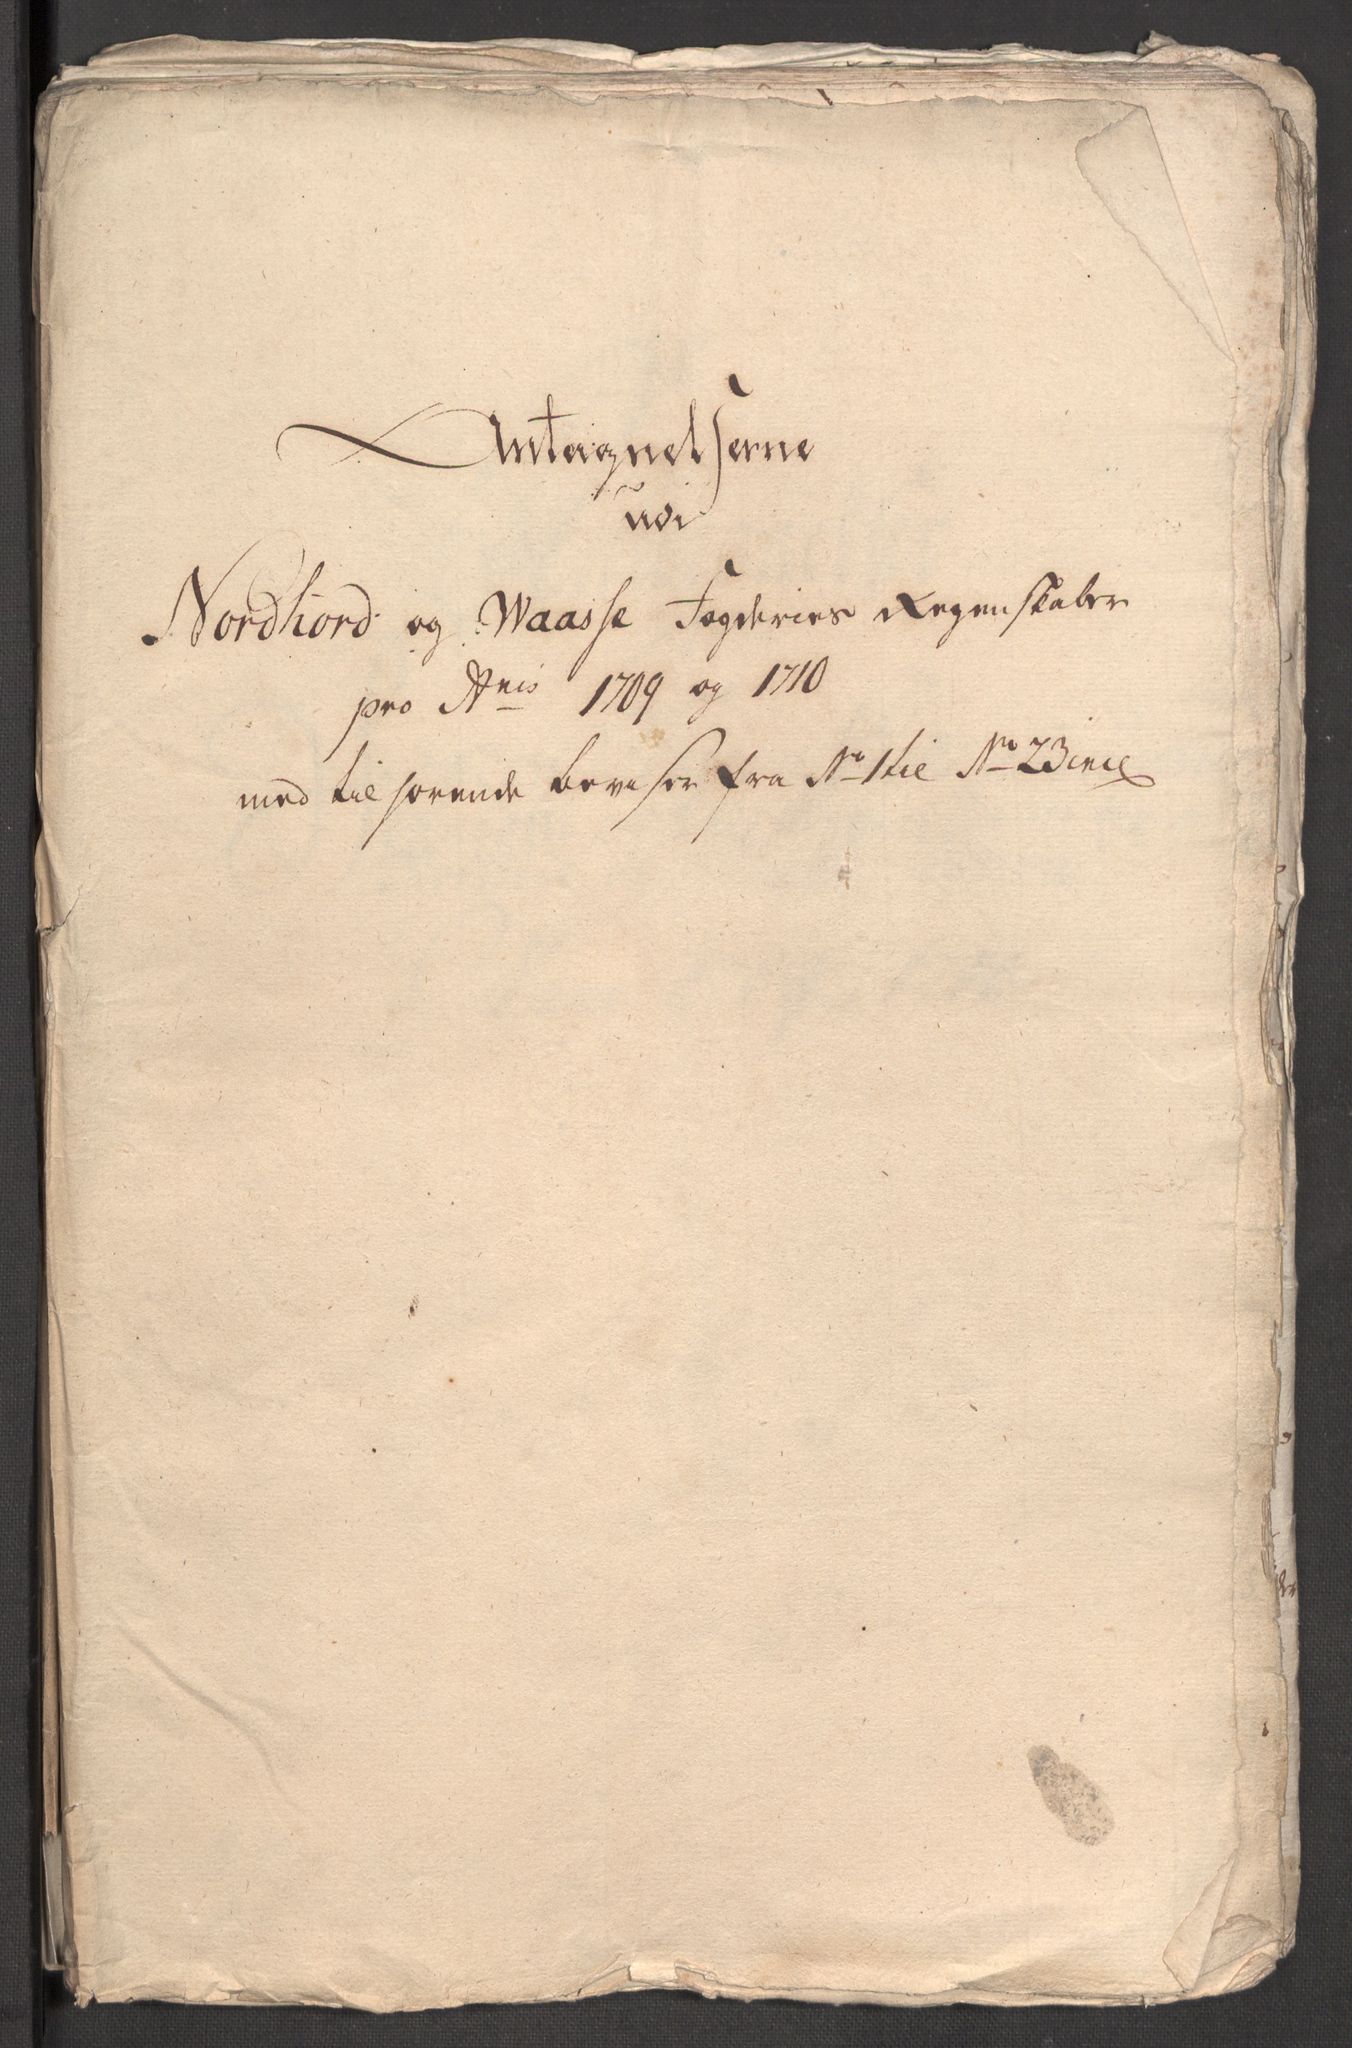 Antagnelserne
udi
Nordhord og Waasse Fogderies Regenskaber
pro Anis 1709 og 1710
med tilhørende beviser fra No 1 til No 23 incl